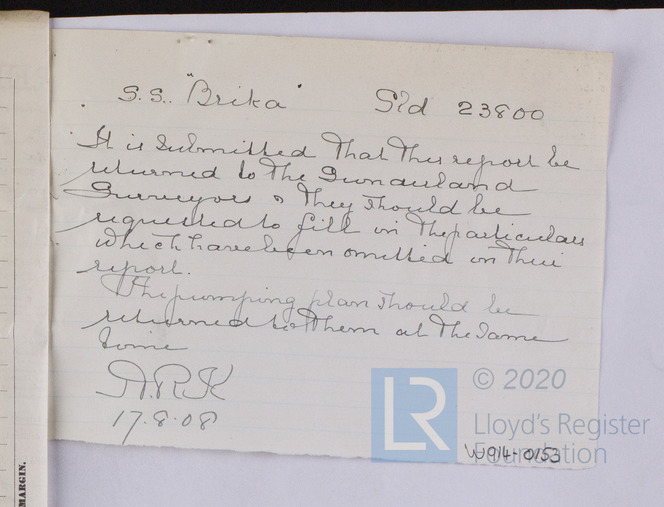 S.S. "Brika" Sld 23800
It is submitted that this report be
returned to the Sunderland
Surveyors & they should be
requested to fill in the particulars
which have been omitted in their
report.
The pumping plan should be
returned to them at the same
time
A.R.K
17.8.08
LR
© 2020
Lloyd's Register
Foundation
W914-0153
MARGIN.